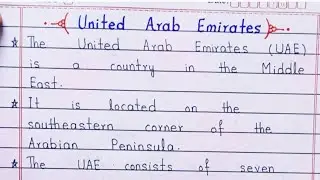 United Arab Emirates
☆ The United Arab Emirates (UAE)
is a country in the Middle
East.
☆ It is located on the
southeastern corner of the
Arabian Peninsula.
☆ The UAE consists of seven